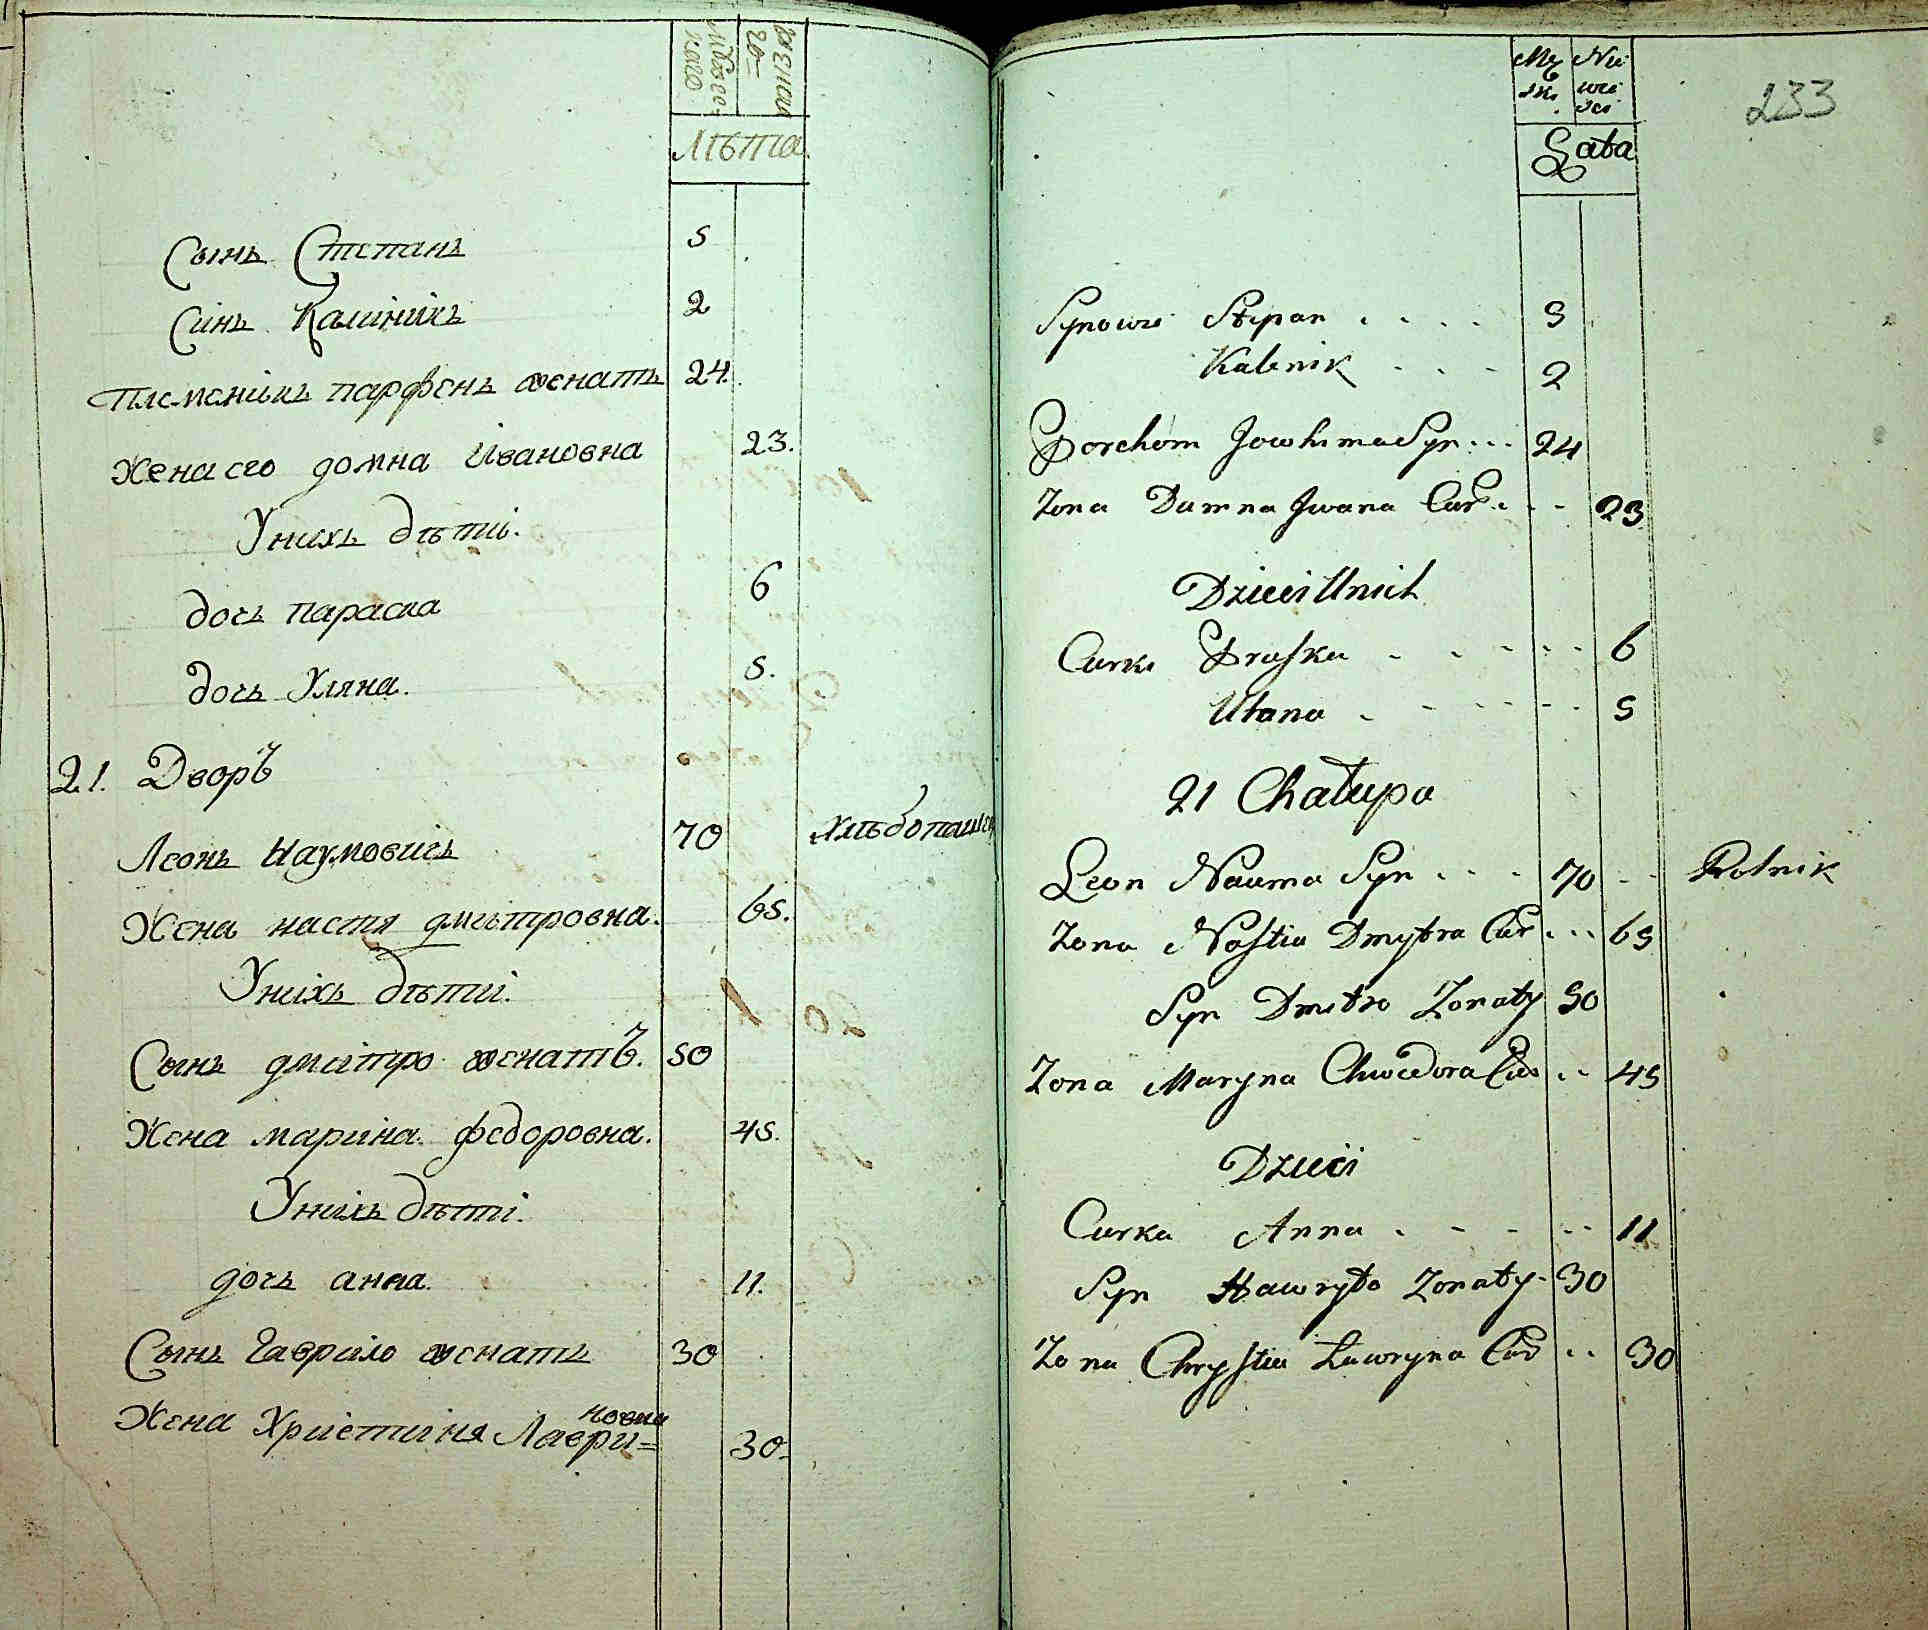 мужеского женского
Лѣта
Сынъ Степанъ 5
Синъ Калиникъ 2
племенікъ парфенъ женатъ 24.
Жена его домна Ивановна 23.
Унихъ дѣти.
дочь параска 6
дочь Уляна. 5.
21. Дворъ
Леонъ Наумовичъ 70 хлѣбопашецъ
Жена настя дмитровна. 65.
Унихъ дѣти.
Сынъ дмитро женатъ. 50
Жена марина федоровна. 45.
Унихъ дѣти.
дочь анна. 11.
Сынъ Гаврило женатъ 30
Жена Христиня Лаври=новна 30.
233
Męzki Niewieści
Lata
Synowie Stepan 5
Kalenik 2
Porchom Jowhima Syn 24
Zona Dumna Jwana Cur. 23
Dzieci Unich
Curki Praska 6
Ulana 5
21 Chałupa
Leon Nauma Syn 70 Rolnik
Zona Nastia Dmytra Cur 65
Syn Dmitro Zonaty 50
Zona Maryna Chwedora Cur 45
Dzieci
Curka Anna 11
Syn Hawryło Zonaty 30
Zona Chrystia Ławryna Cur 30